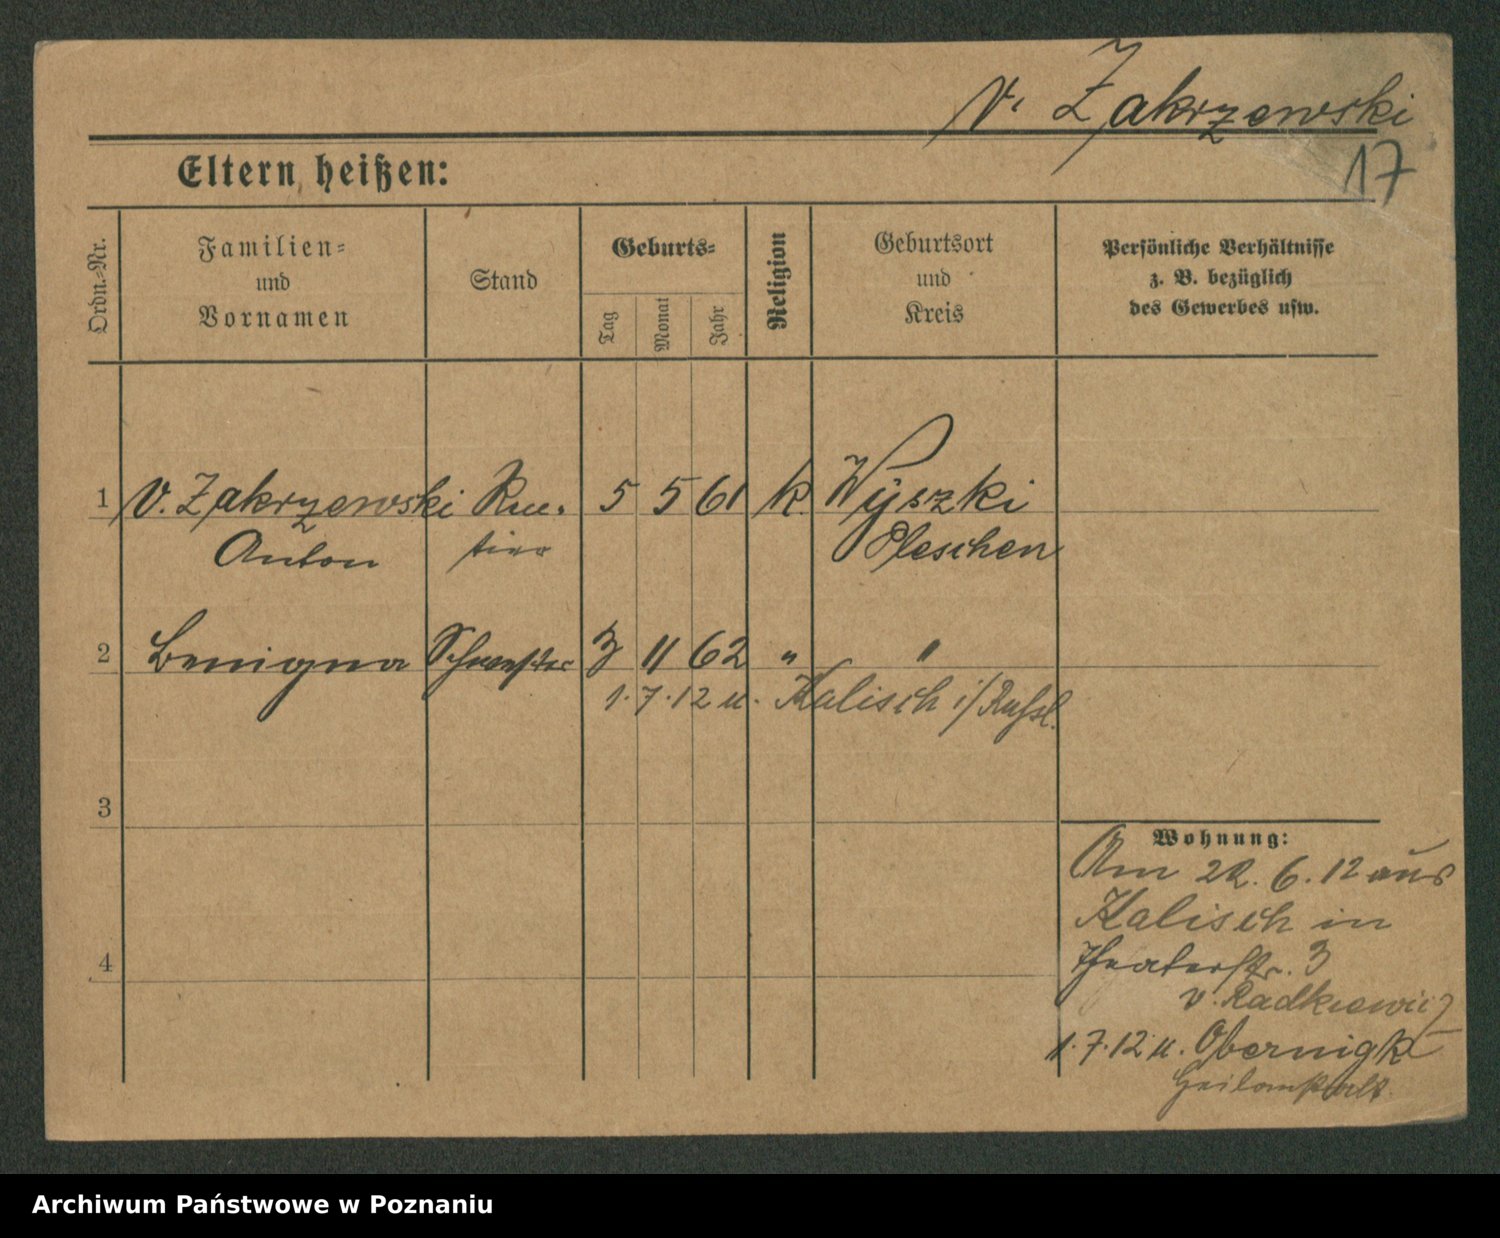 v. Zakrzewski
17
Eltern heißen:
Ordn.-Nr.
Familien-
und
Vornamen
Stand
Geburts-
Tag
Monat
Jahr
Religion
Geburtsort
und
Kreis
Persönliche Verhältnisse
z. B. bezüglich
des Gewerbes usw.
1 v. Zakrzewski Ren- 5 5 61 k. Wyszki
Anton tier Pleschen
2 Benigna Schwester 3 11 62 " "
1.7.12 u. Kalisch i/Rußl.
3
4
Wohnung:
Am 22.6.12 aus
Kalisch in
Theaterstr. 3
v. Radkiewicz
1.7.12 u. Obernigk
Heilanstalt.
Archiwum Państwowe w Poznaniu